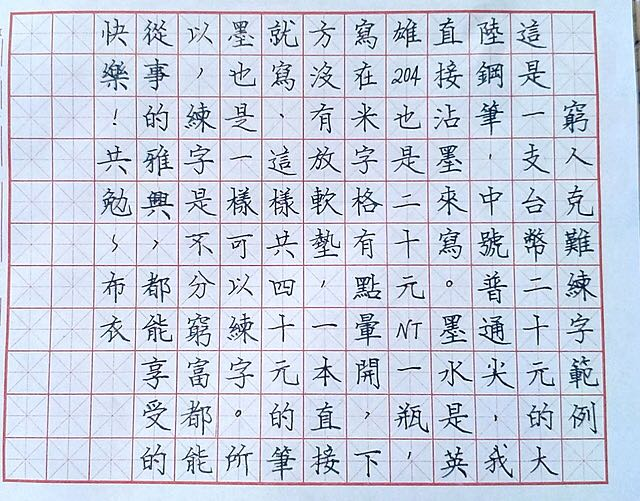 窮人克難練字範例
這是一支台幣二十元的大
陸鋼筆,中號普通尖,我
直接沾墨來寫。墨水是英
雄204也是二十元NT一瓶,
寫在米字格有點暈開,下
方沒有放軟墊,一本直接
就寫、這樣共四十元的筆
墨也是一樣可以練字。所
以,練字是不分窮富都能
從事的雅興,都能享受的
快樂!共勉~布衣